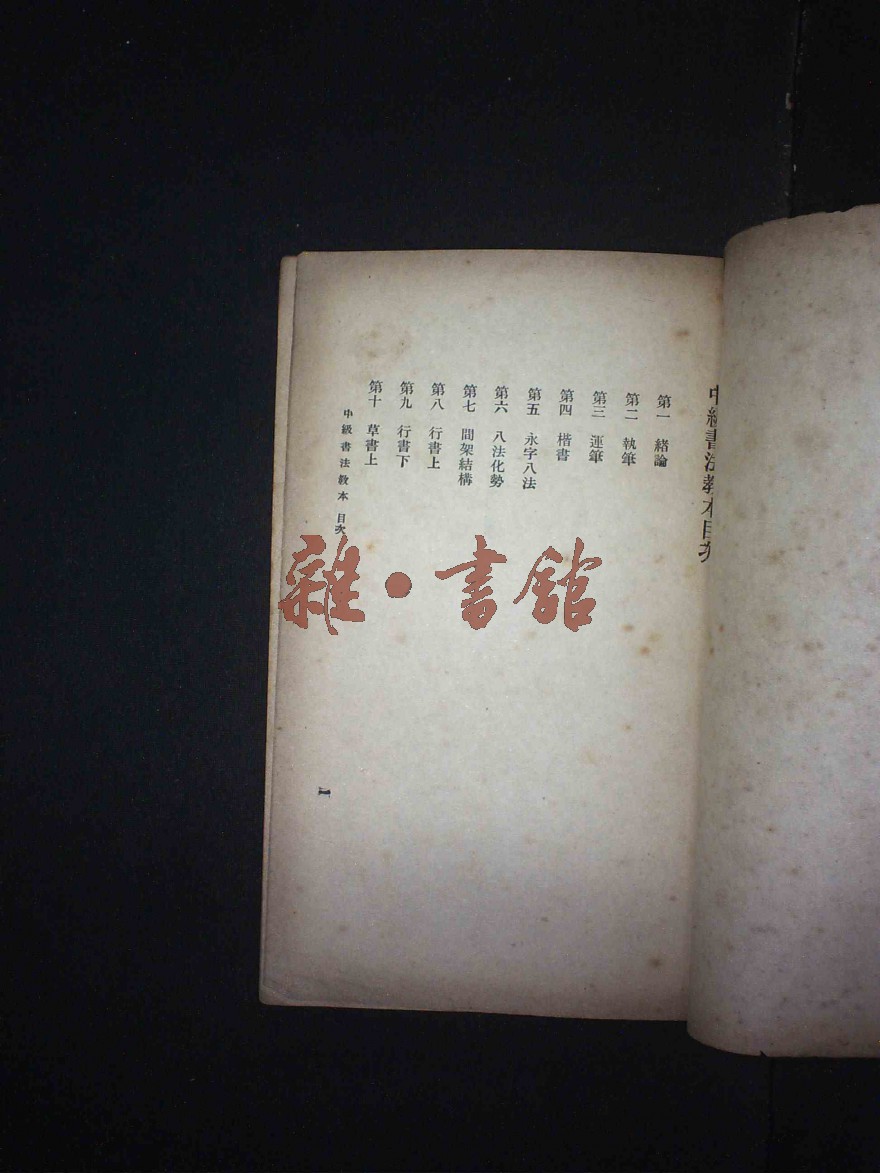 中級書法教本目次
第一 緒論
第二 執筆
第三 運筆
第四 楷書
第五 永字八法
第六 八法化勢
第七 間架結構
第八 行書上
第九 行書下
第十 草書上
中級書法教本 目次
一
雜·書館